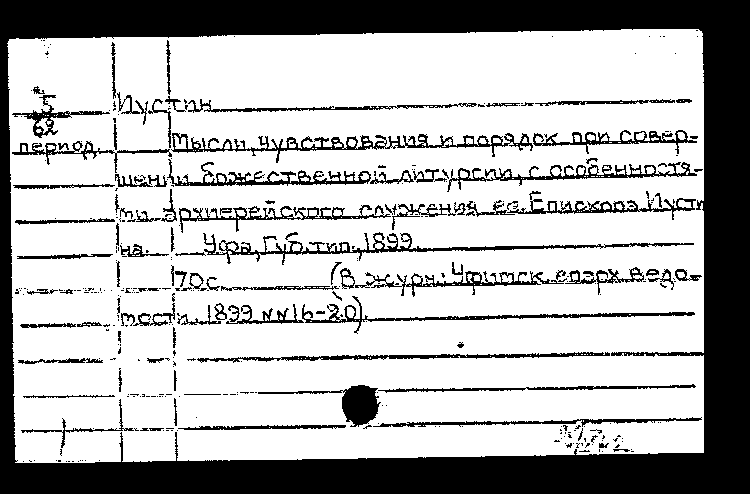 5
62
период.
Иустин
Мысли, чувствования и порядок при совер-
шении божественной литургии, с особенностя-
ми архиерейского служения ее. Епископа Иусти
на. Уфа, Губ. тип., 1899.
70с. (В журн.: Уфимск. епарх. ведо-
мости. 1899 NN16-20).